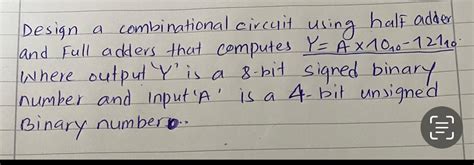 Design a combinational circuit using half adder
and Full adders that computes Y= A×10₁₀-121₁₀.
Where output 'Y' is a 8-bit signed binary
number and input 'A' is a 4-bit unsigned
Binary number..